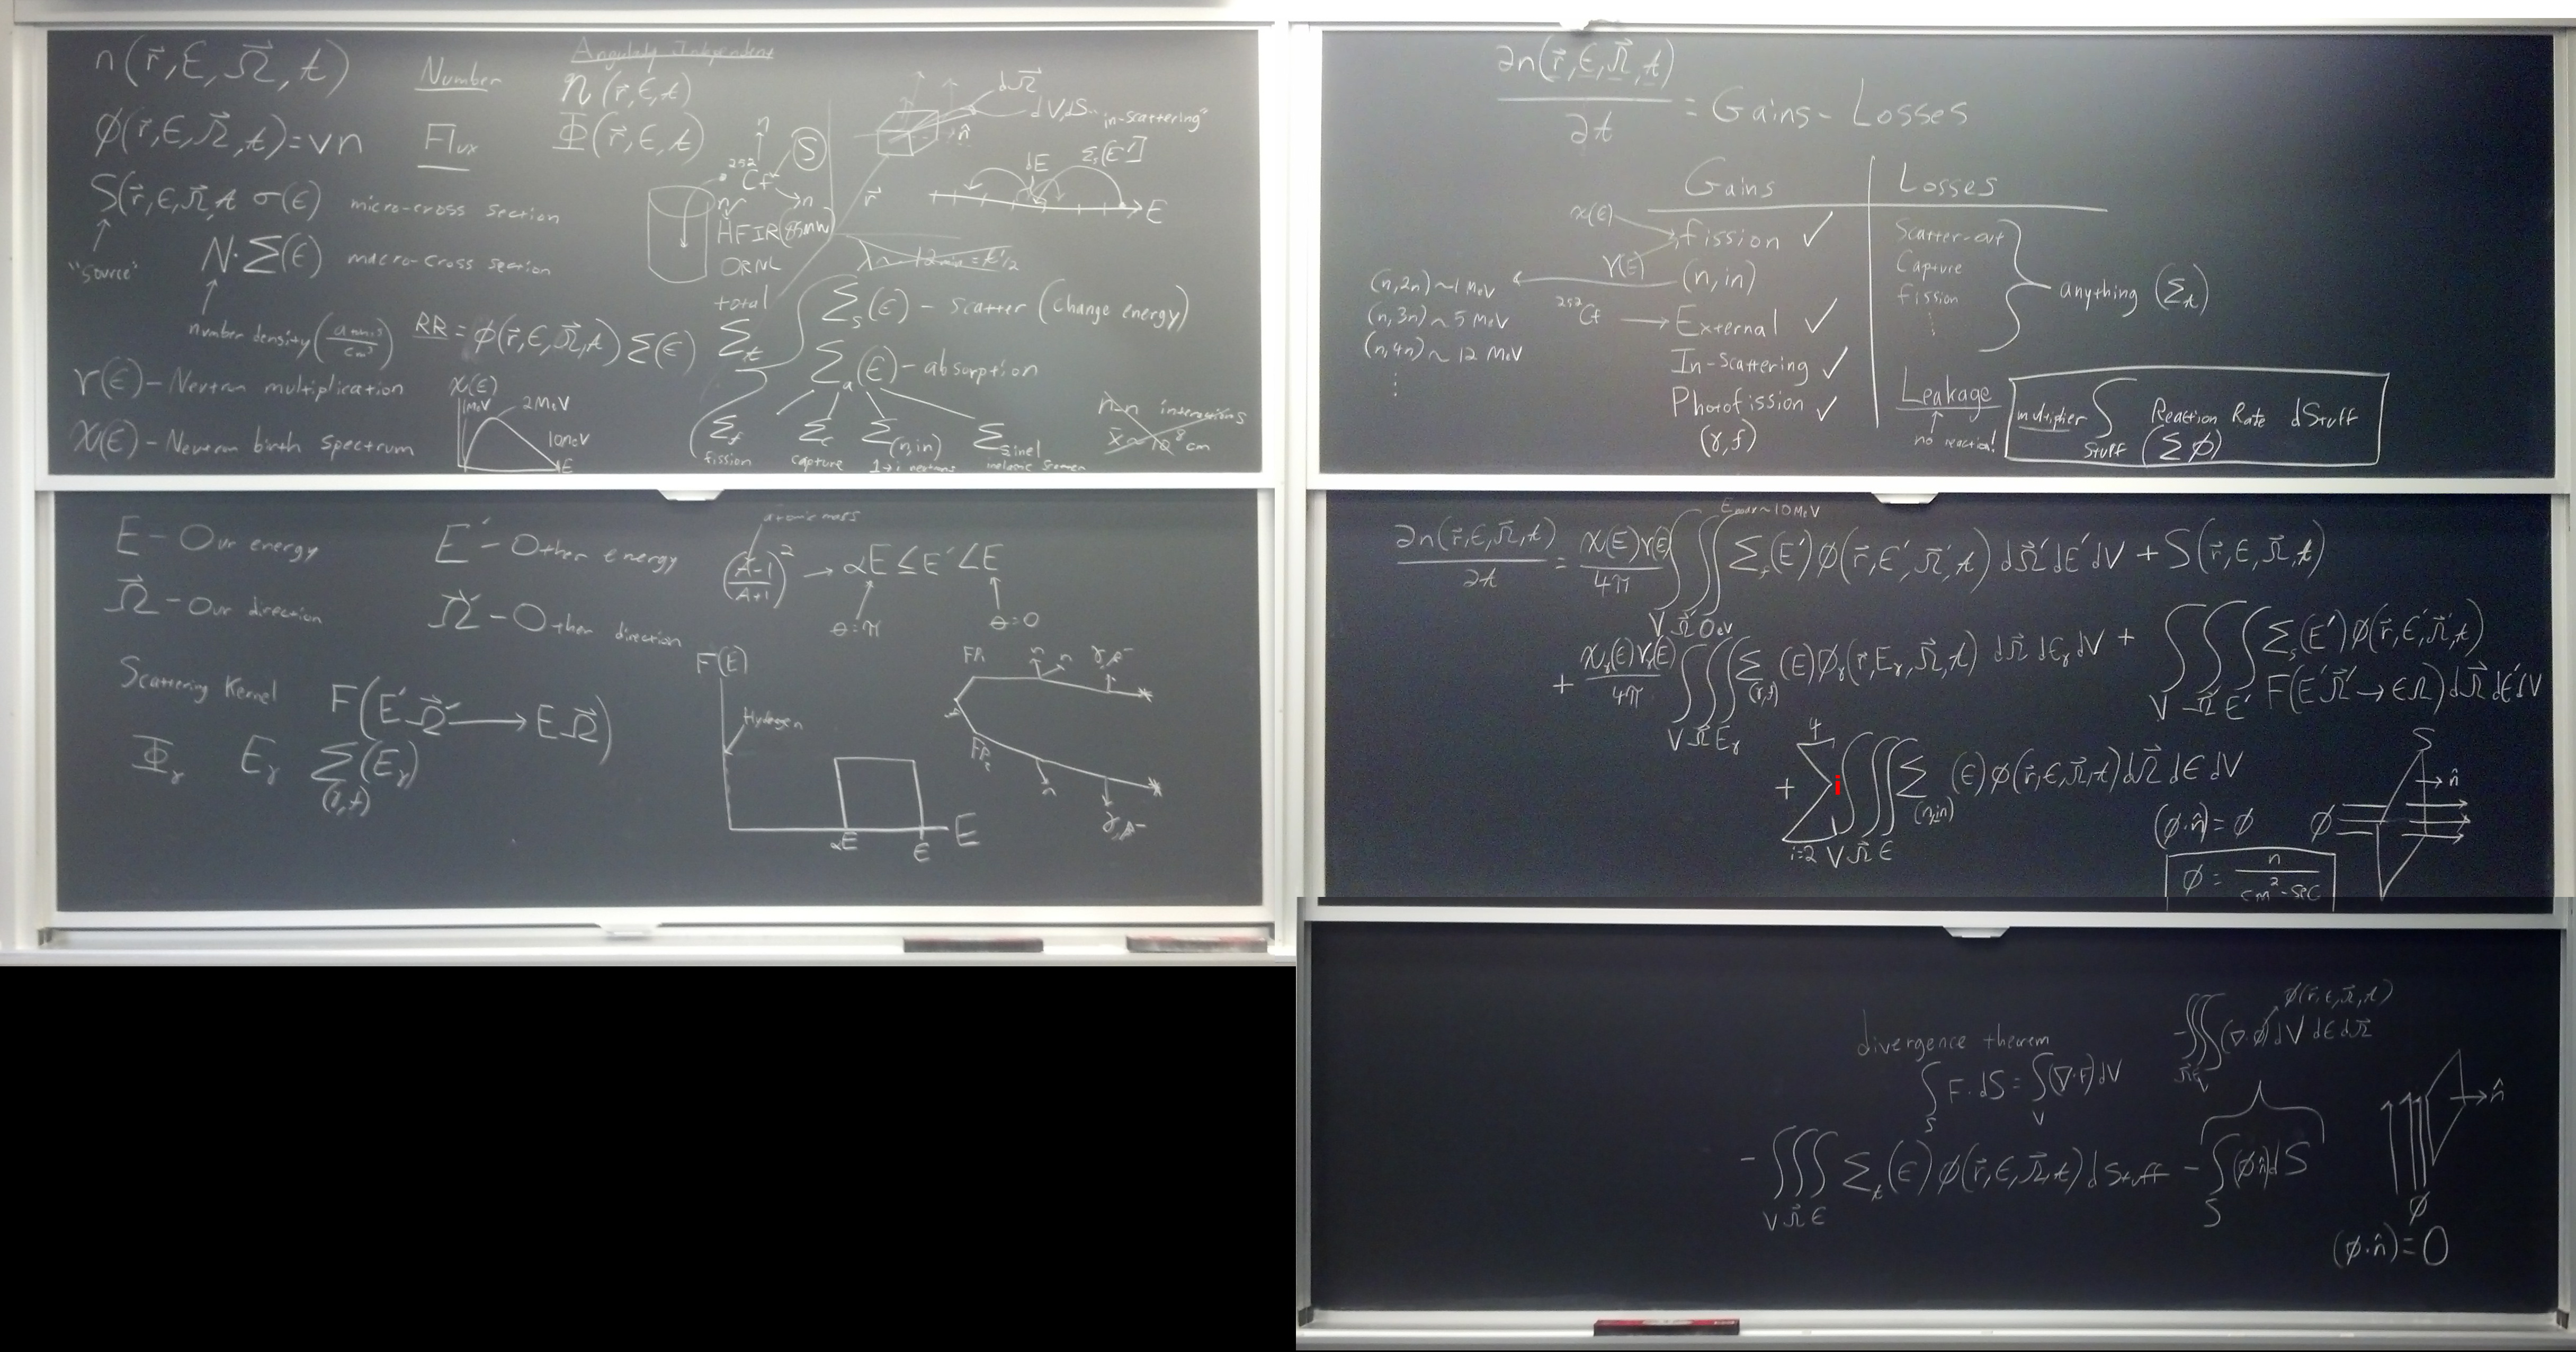 n(r⃗,E,Ω⃗,t) Number
Angularly Independent
n(r⃗,E,t)
ϕ(r⃗,E,Ω⃗,t)=vn Flux Φ(r⃗,E,t)
S(r⃗,E,Ω⃗,t σ(E) micro-cross section
"source"
N·Σ(E) macro-cross section
number density (atoms/cm³)
RR = ϕ(r⃗,E,Ω⃗,t) Σ(E)
ν(E) - Neutron multiplication
χ(E) - Neutron birth spectrum
χ(E)
1MeV 2MeV
10MeV
E
n
²⁵²Cf S
n n
HFIR (85MW)
ORNL
dΩ⃗
dV, dS
n̂
r⃗
"in-scattering"
dE Σs(E')
E
n 12 min = t1/2
total
Σt
Σs(E) - scatter (change energy)
Σa(E) - absorption
Σf Σc Σ(n,in) Σinel
fission capture 1→i neutrons inelastic
n-n interactions
x̄ ~ 10⁸ cm
E - Our energy E' - Other energy
Ω⃗ - Our direction Ω⃗' - Other direction
atomic mass
(A-1/A+1)² → αE ≤ E' < E
θ=π θ=0
Scattering Kernel F(E'Ω⃗' → EΩ⃗)
Φγ Eγ Σ(γ,f)(Eγ)
F(E)
Hydrogen
αE E E
FP₁ n n γ,β⁻
FP₂ n γ,β⁻
∂n(r⃗,E,Ω⃗,t)/∂t = Gains - Losses
Gains Losses
χ(E) fission ✓
ν(E) (n,in)
²⁵²Cf → External ✓
In-Scattering ✓
Photofission ✓
(γ,f)
(n,2n) ~ 1 MeV
(n,3n) ~ 5 MeV
(n,4n) ~ 12 MeV
⋮
Scatter-out
Capture
Fission
⋮
anything (Σt)
Leakage
no reaction!
multiplier ∫Stuff Reaction Rate dStuff
(Σϕ)
∂n(r⃗,E,Ω⃗,t)/∂t = χ(E)ν(E)/4π ∫V∫Ω⃗'∫0eV^Emax~10MeV Σf(E')ϕ(r⃗,E',Ω⃗',t) dΩ⃗'dE'dV + S(r⃗,E,Ω⃗,t)
+ χγ(E)νγ(E)/4π ∫V∫Ω⃗∫Eγ Σ(γ,f)(E)ϕγ(r⃗,Eγ,Ω⃗,t) dΩ⃗ dEγ dV + ∫V∫Ω⃗'∫E' Σs(E')ϕ(r⃗,E',Ω⃗',t)
F(E'Ω⃗'→EΩ)dΩ⃗dE'dV
+ Σi=2^4 i ∫V∫Ω⃗∫E Σ(n,in)(E)ϕ(r⃗,E,Ω⃗,t)dΩ⃗ dE dV
S
n̂
ϕ
(ϕ·n̂)=ϕ
ϕ = n/cm²-sec
divergence theorem
∫S F·dS = ∫V(∇·F)dV
ϕ(r⃗,E,Ω⃗,t)
-∫Ω⃗∫E∫V(∇·ϕ)dV dE dΩ⃗
-∫V∫Ω⃗∫E Σt(E)ϕ(r⃗,E,Ω⃗,t)dStuff - ∫S(ϕ·n̂)dS
n̂
ϕ
(ϕ·n̂)=0